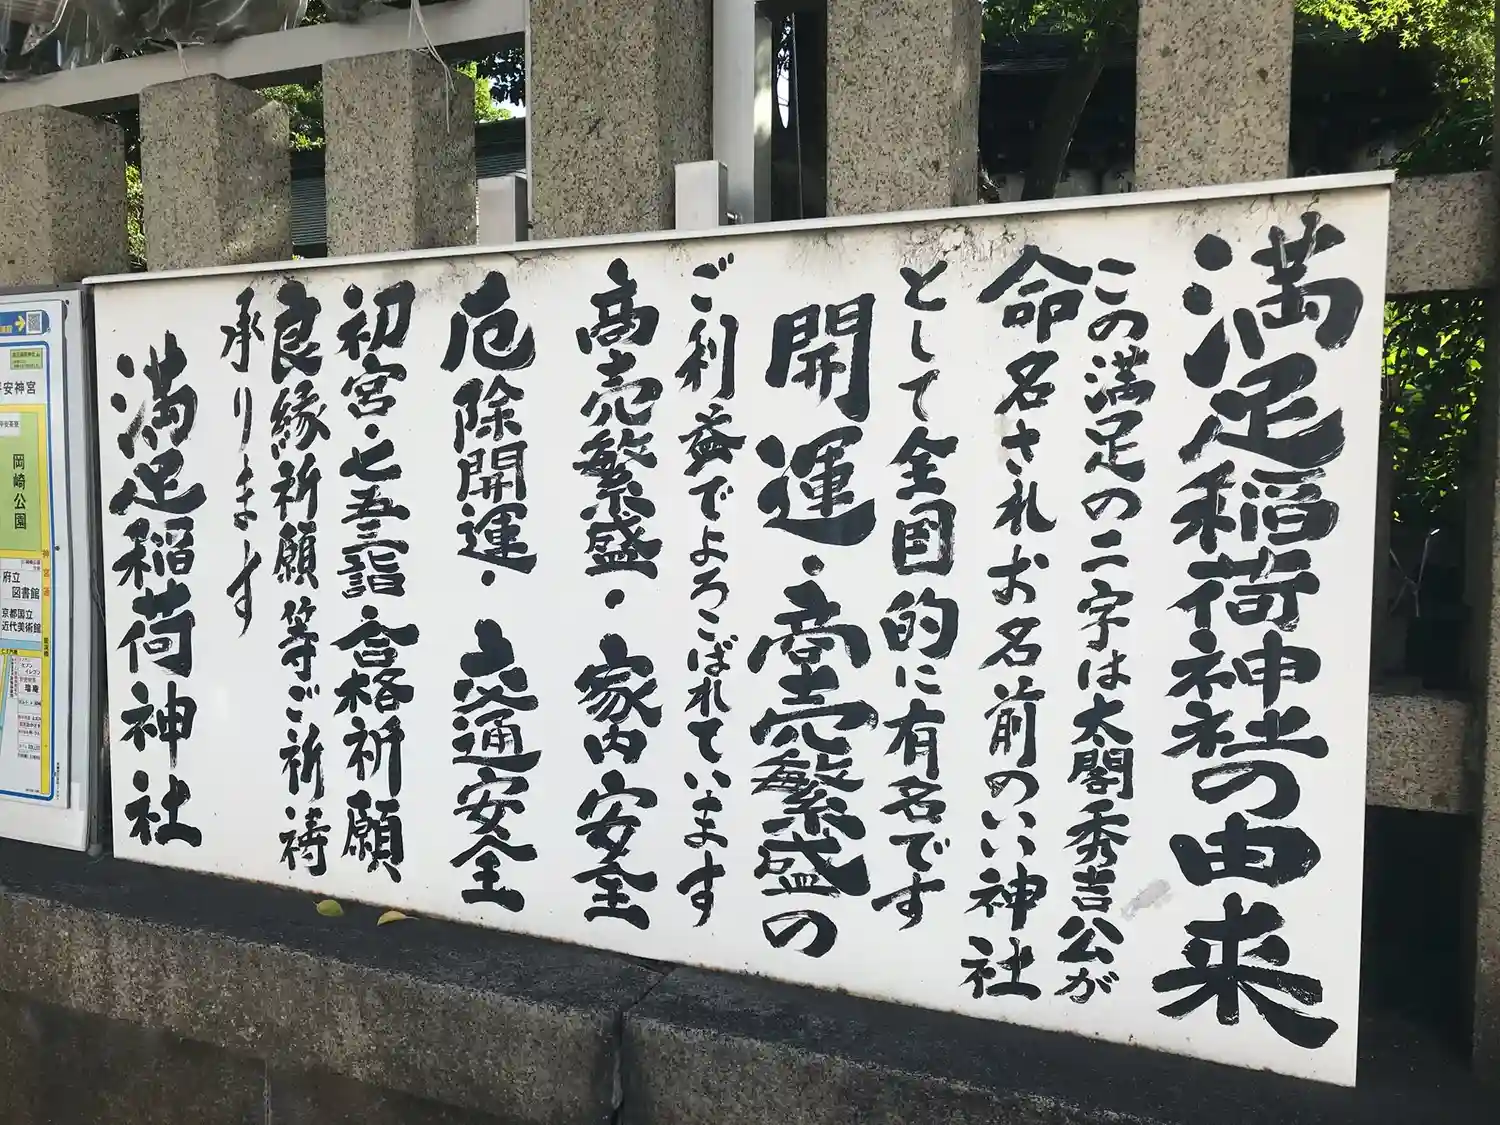 満足稲荷神社の由来
この満足の二字は太閤秀吉公が
命名されお名前のいい神社
として全国的に有名です
開運・商売繁盛の
ご利益でよろこばれています
商売繁盛・家内安全
厄除開運・交通安全
初宮・七五三詣 合格祈願
良縁祈願等ご祈祷
承ります
満足稲荷神社
安神宮
岡崎公園
神宮道
府立
図書館
京都国立
近代美術館